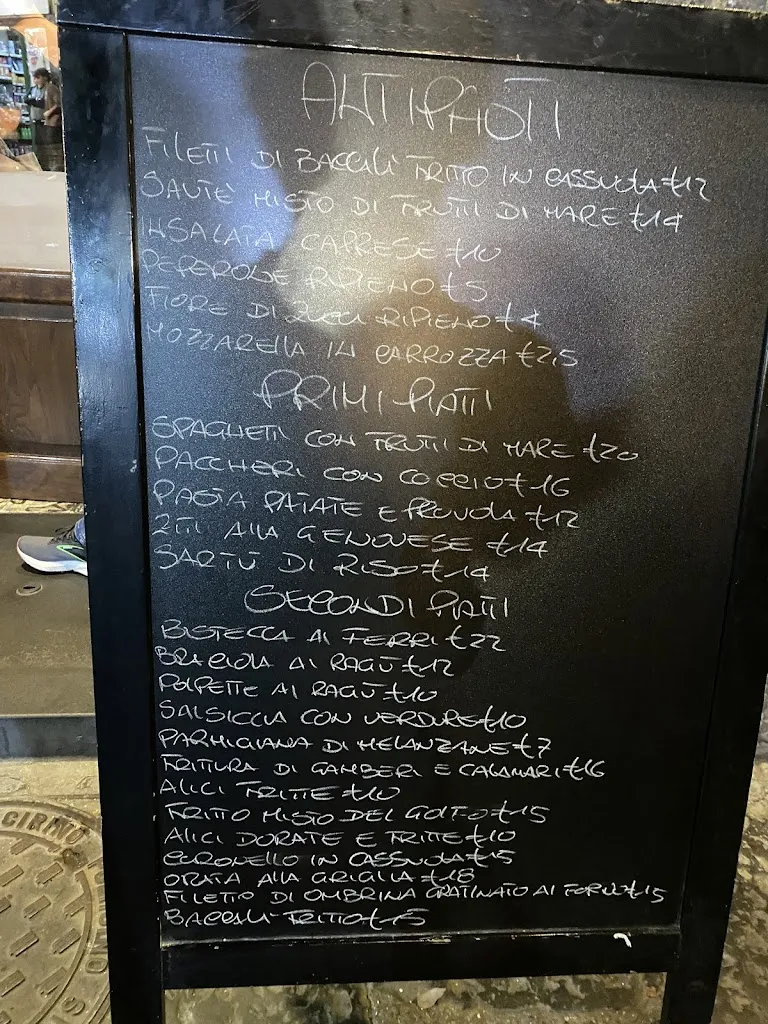 ANTIPASTI
FILETTI DI BACCALÀ FRITTO IN CASSUOLA €12
SAUTÈ MISTO DI FRUTTI DI MARE €14
INSALATA CAPRESE €10
PEPERONE RIPIENO €5
FIORE DI ZUCCA RIPIENO €4
MOZZARELLA IN CARROZZA €2,5
PRIMI PIATTI
SPAGHETTI CON FRUTTI DI MARE €20
PACCHERI CON COCCIO €16
PASTA PATATE E PROVOLA €12
ZITI ALLA GENOVESE €14
SARTÙ DI RISO €14
SECONDI PIATTI
BISTECCA AI FERRI €22
BRACIOLA AI RAGÙ €12
POLPETTE AI RAGÙ €10
SALSICCIA CON VERDURE €10
PARMIGIANA DI MELANZANE €7
FRITTURA DI GAMBERI E CALAMARI €16
ALICI FRITTE €10
FRITTO MISTO DEL GOLFO €15
ALICI DORATE E FRITTE €10
CORONELLO IN CASSUOLA €15
ORATA ALLA GRIGLIA €18
FILETTO DI OMBRINA GRATINATO AI FORNO €15
BACCALÀ FRITTO €15
CIRINO